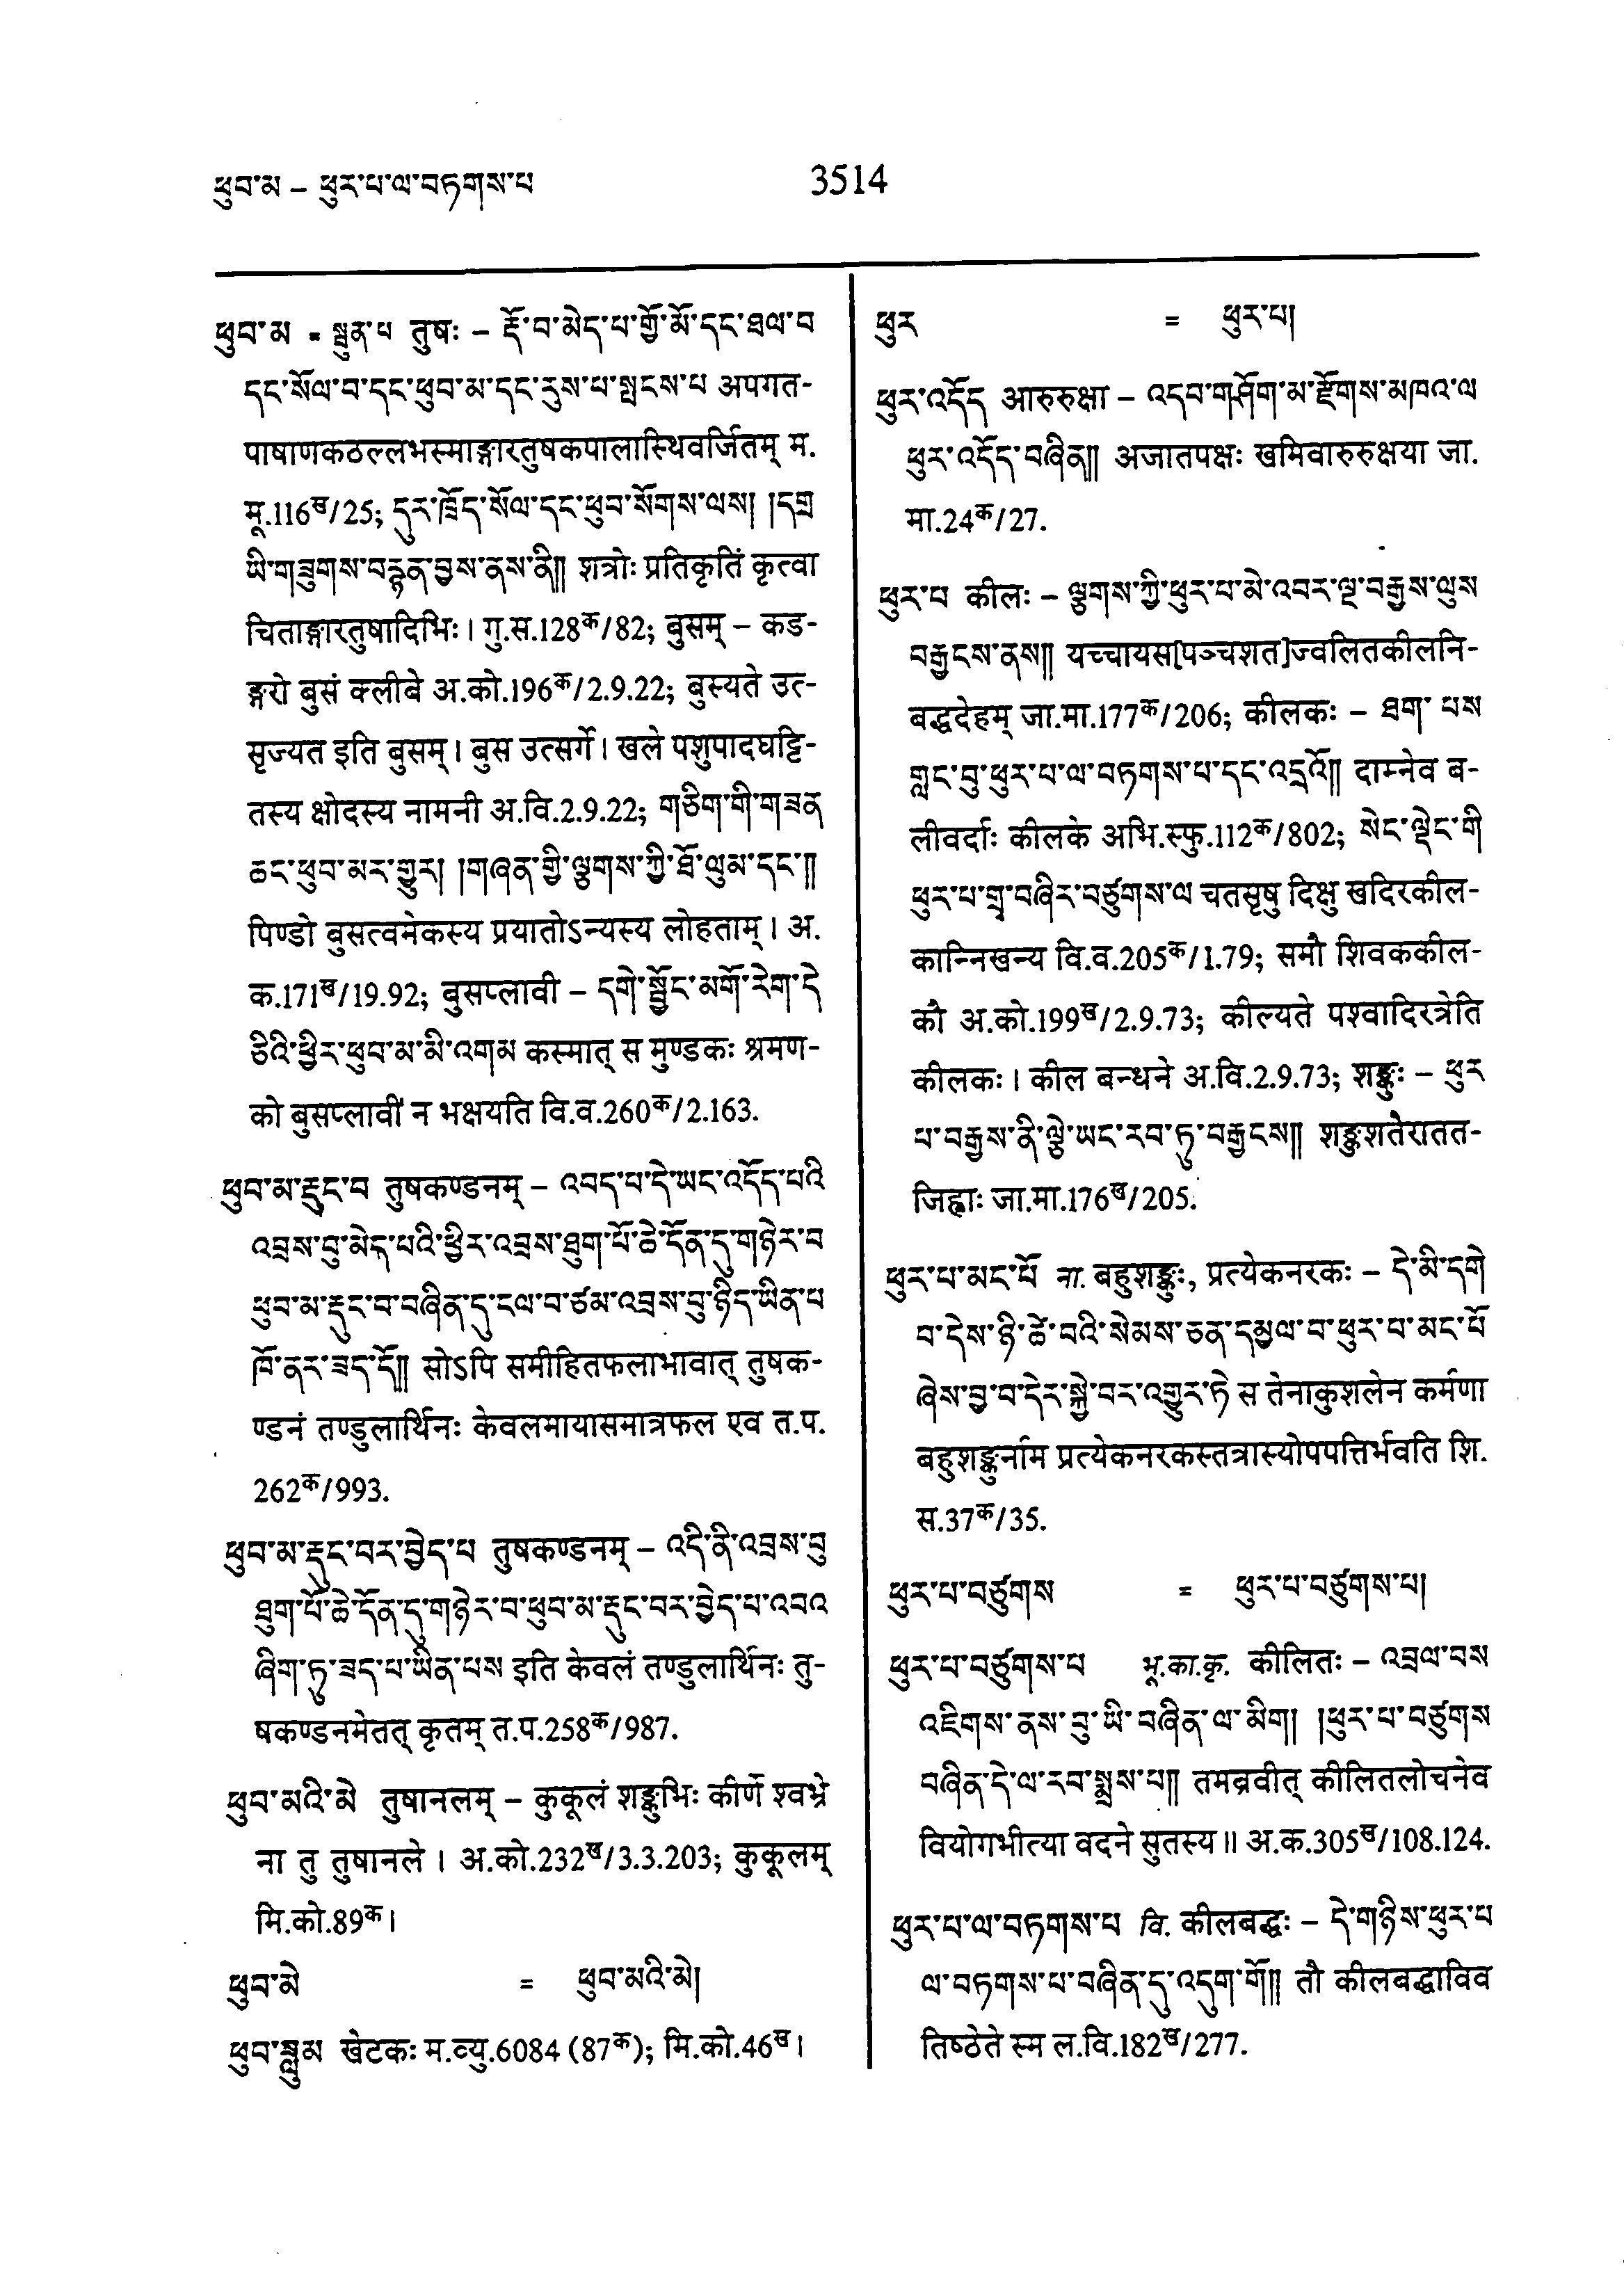 ཕུབ་མ – ཕུར་པ་ལ་བཏགས་པ
3514
ཕུབ་མ = སྦུན་པ तुषः – རྡོ་བ་མེད་པ་གྱོ་མོ་དང་ཐལ་བ
དང་སོལ་བ་དང་ཕུབ་མ་དང་རུས་པ་སྤངས་པ अपगत-
पाषाणकठल्लभस्माङ्गारतुषकपालास्थिवर्जितम् म.
मू.116ख/25; དུར་ཁྲོད་སོལ་དང་ཕུབ་སོགས་ལས། །དགྲ
ཡི་གཟུགས་བརྙན་བྱས་ནས་ནི།། शत्रोः प्रतिकृतिं कृत्वा
चिताङ्गारतुषादिभिः। गु.स.128क/82; बुसम् – कड-
ङ्गरो बुसं क्लीबे अ.को.196क/2.9.22; बुस्यते उत-
सृज्यत इति बुसम्। बुस उत्सर्गे। खले पशुपादघट्टि-
तस्य क्षोदस्य नामनी अ.वि.2.9.22; གཅིག་གི་གཟན
ཆང་ཕུབ་མར་གྱུར། །གཞན་གྱི་ལྕགས་ཀྱི་ཐོ་ལུམ་དང་།།
पिण्डो बुसत्वमेकस्य प्रयातोऽन्यस्य लोहताम्। अ.
क.171ख/19.92; बुसप्लावी – དགེ་སྦྱོང་མགོ་རེག་དེ
ཅིའི་ཕྱིར་ཕུབ་མ་མི་འགམ कस्मात् स मुण्डकः श्रमण-
को बुसप्लावीं न भक्षयति वि.व.260क/2.163.
ཕུབ་མ་རྡུང་བ तुषकण्डनम् – འབད་པ་དེ་ཡང་འདོད་པའི
འབྲས་བུ་མེད་པའི་ཕྱིར་འབྲས་ཐུག་པོ་ཆེ་དོན་དུ་གཉེར་བ
ཕུབ་མ་རྡུང་བ་བཞིན་དུ་ངལ་བ་ཙམ་འབྲས་བུ་ཉིད་ཡིན་པ
ཁོ་ནར་ཟད་དོ།། सोऽपि समीहितफलाभावात् तुषक-
ण्डनं तण्डुलार्थिनः केवलमायासमात्रफल एव त.प.
262क/993.
ཕུབ་མ་རྡུང་བར་བྱེད་པ तुषकण्डनम् – འདི་ནི་འབྲས་བུ
ཐུག་པོ་ཆེ་དོན་དུ་གཉེར་བ་ཕུབ་མ་རྡུང་བར་བྱེད་པ་འབའ
ཞིག་ཏུ་ཟད་པ་ཡིན་པས इति केवलं तण्डुलार्थिनः तु-
षकण्डनमेतत् कृतम् त.प.258क/987.
ཕུབ་མའི་མེ तुषानलम् – कुकूलं शङ्कुभिः कीर्णे श्वभ्रे
ना तु तुषानले। अ.को.232ख/3.3.203; कुकूलम्
मि.को.89क।
ཕུབ་མེ = ཕུབ་མའི་མེ།
ཕུབ་སླུམ खेटकः म.व्यु.6084 (87क); मि.को.46ख।
ཕུར = ཕུར་པ།
ཕུར་འདོད आरुरुक्षा – འདབ་གཤོག་མ་རྫོགས་མཁའ་ལ
ཕུར་འདོད་བཞིན།། अजातपक्षः खमिवारुरुक्षया जा.
मा.24क/27.
ཕུར་པ कीलः – ལྕགས་ཀྱི་ཕུར་པ་མེ་འབར་ལྔ་བརྒྱས་ལུས
བརྒྱངས་ནས།། यच्चायस[पञ्चशत]ज्वलितकीलनि-
बद्धदेहम् जा.मा.177क/206; कीलकः – ཐག་ པས
གླང་བུ་ཕུར་པ་ལ་བཏགས་པ་དང་འདྲའོ།། दाम्नेव ब-
लीवर्दाः कीलके अभि.स्फु.112क/802; སེང་ལྡེང་གི
ཕུར་པ་གྲྭ་བཞིར་བཙུགས་ལ चतसृषु दिक्षु खदिरकील-
कान्निखन्य वि.व.205क/1.79; समौ शिवककील-
कौ अ.को.199ख/2.9.73; कील्यते पश्वादिरत्रेति
कीलकः। कील बन्धने अ.वि.2.9.73; शङ्कुः – ཕུར
པ་བརྒྱས་ནི་ལྕེ་ཡང་རབ་ཏུ་བརྒྱངས།། शङ्कुशतैरातत-
जिह्वाः जा.मा.176ख/205.
ཕུར་པ་མང་པོ ना. बहुशङ्कुः, प्रत्येकनरकः – དེ་མི་དགེ
བ་དེས་ཉི་ཚེ་བའི་སེམས་ཅན་དམྱལ་བ་ཕུར་པ་མང་པོ
ཞེས་བྱ་བ་དེར་སྐྱེ་བར་འགྱུར་ཏེ स तेनाकुशलेन कर्मणा
बहुशङ्कुर्नाम प्रत्येकनरकस्तत्रास्योपपत्तिर्भवति शि.
स.37क/35.
ཕུར་པ་བཙུགས = ཕུར་པ་བཙུགས་པ།
ཕུར་པ་བཙུགས་པ भू.का.कृ. कीलितः – འབྲལ་བས
འཇིགས་ནས་བུ་ཡི་བཞིན་ལ་མིག། །ཕུར་པ་བཙུགས
བཞིན་དེ་ལ་རབ་སྨྲས་པ།། तमब्रवीत् कीलितलोचनेव
वियोगभीत्या वदने सुतस्य॥ अ.क.305ख/108.124.
ཕུར་པ་ལ་བཏགས་པ वि. कीलबद्धः – དེ་གཉིས་ཕུར་པ
ལ་བཏགས་པ་བཞིན་དུ་འདུག་གོ།། तौ कीलबद्धाविव
तिष्ठेते स्म ल.वि.182ख/277.